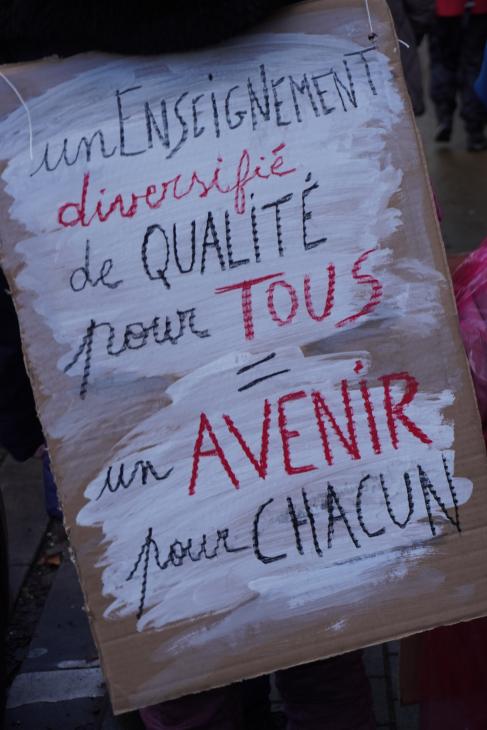 un ENSEIGNEMENT
diversifié
de QUALITÉ
pour TOUS
=
un AVENIR
pour CHACUN